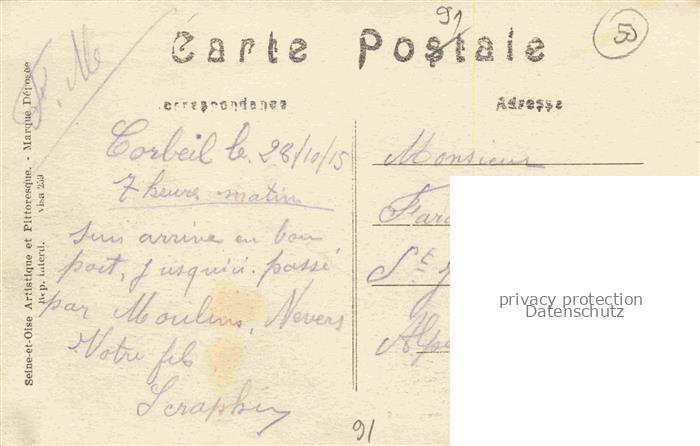 91
50
F. Me
Carte Postale
Correspondance
Adresse
Seine-et-Oise Artistique et Pittoresque. - Marque Déposée
Rep. Interd. Visa 259
Corbeil le 28/10/15
7 heures matin
suis arrivé en bon
port, jusqu'ici passé
par Moulins, Nevers
Votre fils
Seraphin
Monsieur
Fara
St J
Alpe
privacy protection
Datenschutz
91